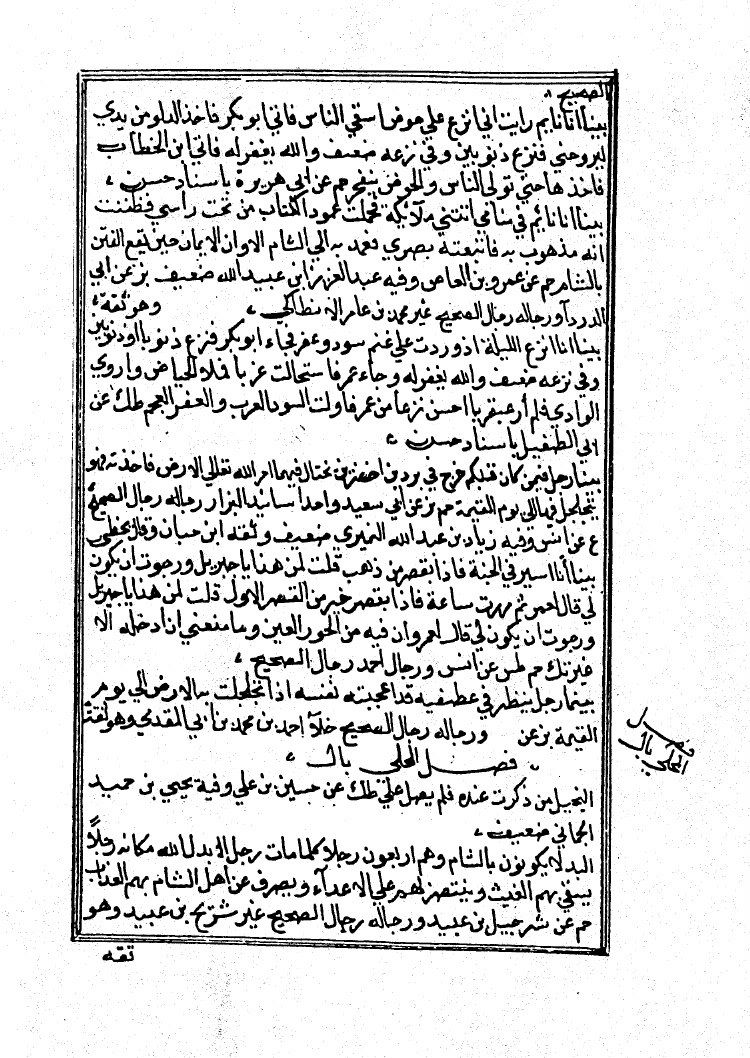 الصحيح ٨
بينا أنا نائم رايت اني انزع علي حوض اسقي الناس فاتي ابو بكر فاخذ الدلو من يدي
ليروحني فنزع ذنوبين وفي نزعه ضعيف والله يغفر له فاتي ابن الخطاب
فاخذها حتي تولى الناس والحوض ينفجر حم عن ابي هريرة باسناد حسن ،
بينا انا نائم في منامي اتتني ملائكة فحملت عمود الكتاب من تحت راسي فظننت
انه مذهوب به فاتبعته بصري فعمد به الي الشام الا وان الايمان حين تقع الفتن
بالشام حم عن عمرو بن العاص وفيه عبد العزيز ابن عبيد الله ضعيف بز عن ابي
الدرداء ورجاله رجال الصحيح غير محمد بن عامر الانطاكي ، وهو ثقة ،
بينا انا انزع الليلة اذ وردت علي غنم سود وعفر فجاء ابو بكر فنزع ذنوبا او ذنوبين
وفي نزعه ضعيف والله يغفر له وجاء عمر فاستحالت غربا فملا الحياض واروي
الوادي فلم أر عبقريا احسن نزعا من عمر فاولت السود العرب والعفر العجم طك عن
ابي الطفيل باسناد حسن ،
بينا رجل فيمن كان قبلكم خرج في بردين اخضرين يختال فيهما امر الله تعالي الارض فاخذته فهو
يتجلجل فيها الي يوم القيمة حم بز عن ابي سعيد واحد اسانيد البزار رجاله رجال الصحيح
ع عن انس وفيه زياد بن عبد الله النميري ضعيف وثقه ابن حبان وقال يخطي
بينا أنا اسير في الجنة فاذا بقصر من ذهب قلت لمن هذا يا جبريل ورجوت ان يكون
لي قال لعمر ثم سرت ساعة فاذا بقصر خير من القصر الاول قلت لمن هذا يا جبريل
ورجوت ان يكون لي قال لعمر وان فيه من الحور العين وما منعني ان ادخله الا
غيرتك حم طس عن انس ورجال احمد رجال الصحيح ،
بينما رجل ينظر في عطفيه قد اعجبته نفسه اذ تجلجلت به الارض الي يوم
القيمة بز عن ورجاله رجال الصحيح خلا احمد بن محمد بن ابي المقدمي وهو ثقة
، فصل المحلي بال ،
البخيل من ذكرت عنده فلم يصل علي طك عن حسين بن علي وفيه يحيي بن حميد
الحماني ضعيف ،
البدلا يكونون بالشام وهم اربعون رجلا كلما مات رجل ابدل الله مكانه رجلاً
يسقي بهم الغيث وينتصر لهم علي الاعدآء ويصرف عن اهل الشام بهم العذاب
حم عن شرجبيل بن عبيد ورجاله رجال الصحيح غير شريح بن عبيد وهو
ثقه
فصل
المحلي بال